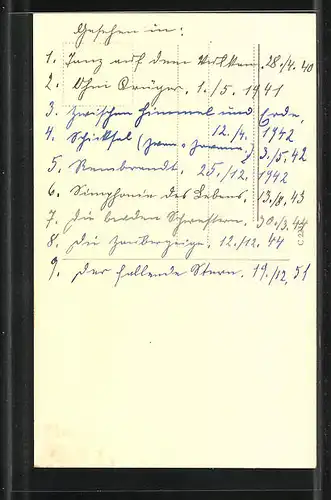 Gesehen in:
1. Tanz auf dem Vulkan. 28./4. 40
2. Ohm Krüger. 1./5. 1941
3. Zwischen Himmel und Erde,
12./4. 1942
4. Schicksal 3./5. 42
5. Rembrandt. 25./12. 1942
6. Simphonie des Lebens. 13./8. 43
7. Die beiden Schwestern. 30./3. 44
8. Die Zaubergeige. 12./12. 44
9. Der fallende Stern. 19./12. 51